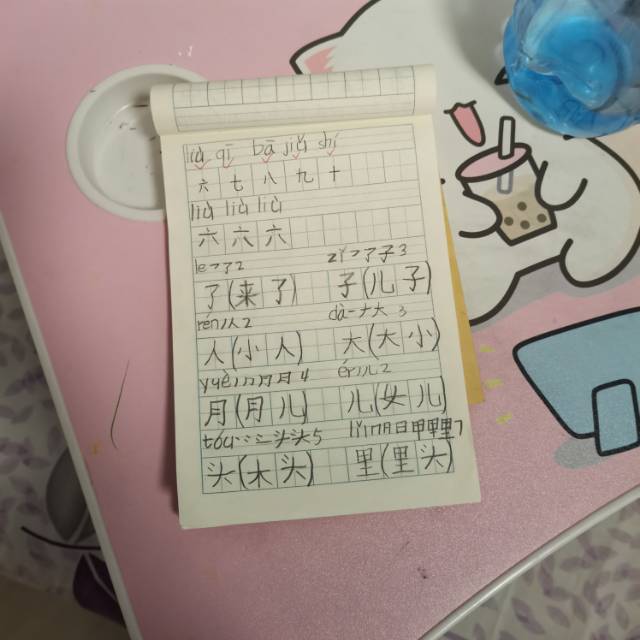 liù qī bā jiǔ shí
六 七 八 九 十
liù liù liù
六 六 六
le乛了2 zǐ乛了子3
了(来了) 子(儿子)
rén丿人2 dà一ナ大3
人(小人) 大(大小)
yuè丿冂月月4 ér丿儿2
月(月儿) 儿(女儿)
tóu头5 lǐ丨冂日日甲里里7
头(木头) 里(里头)